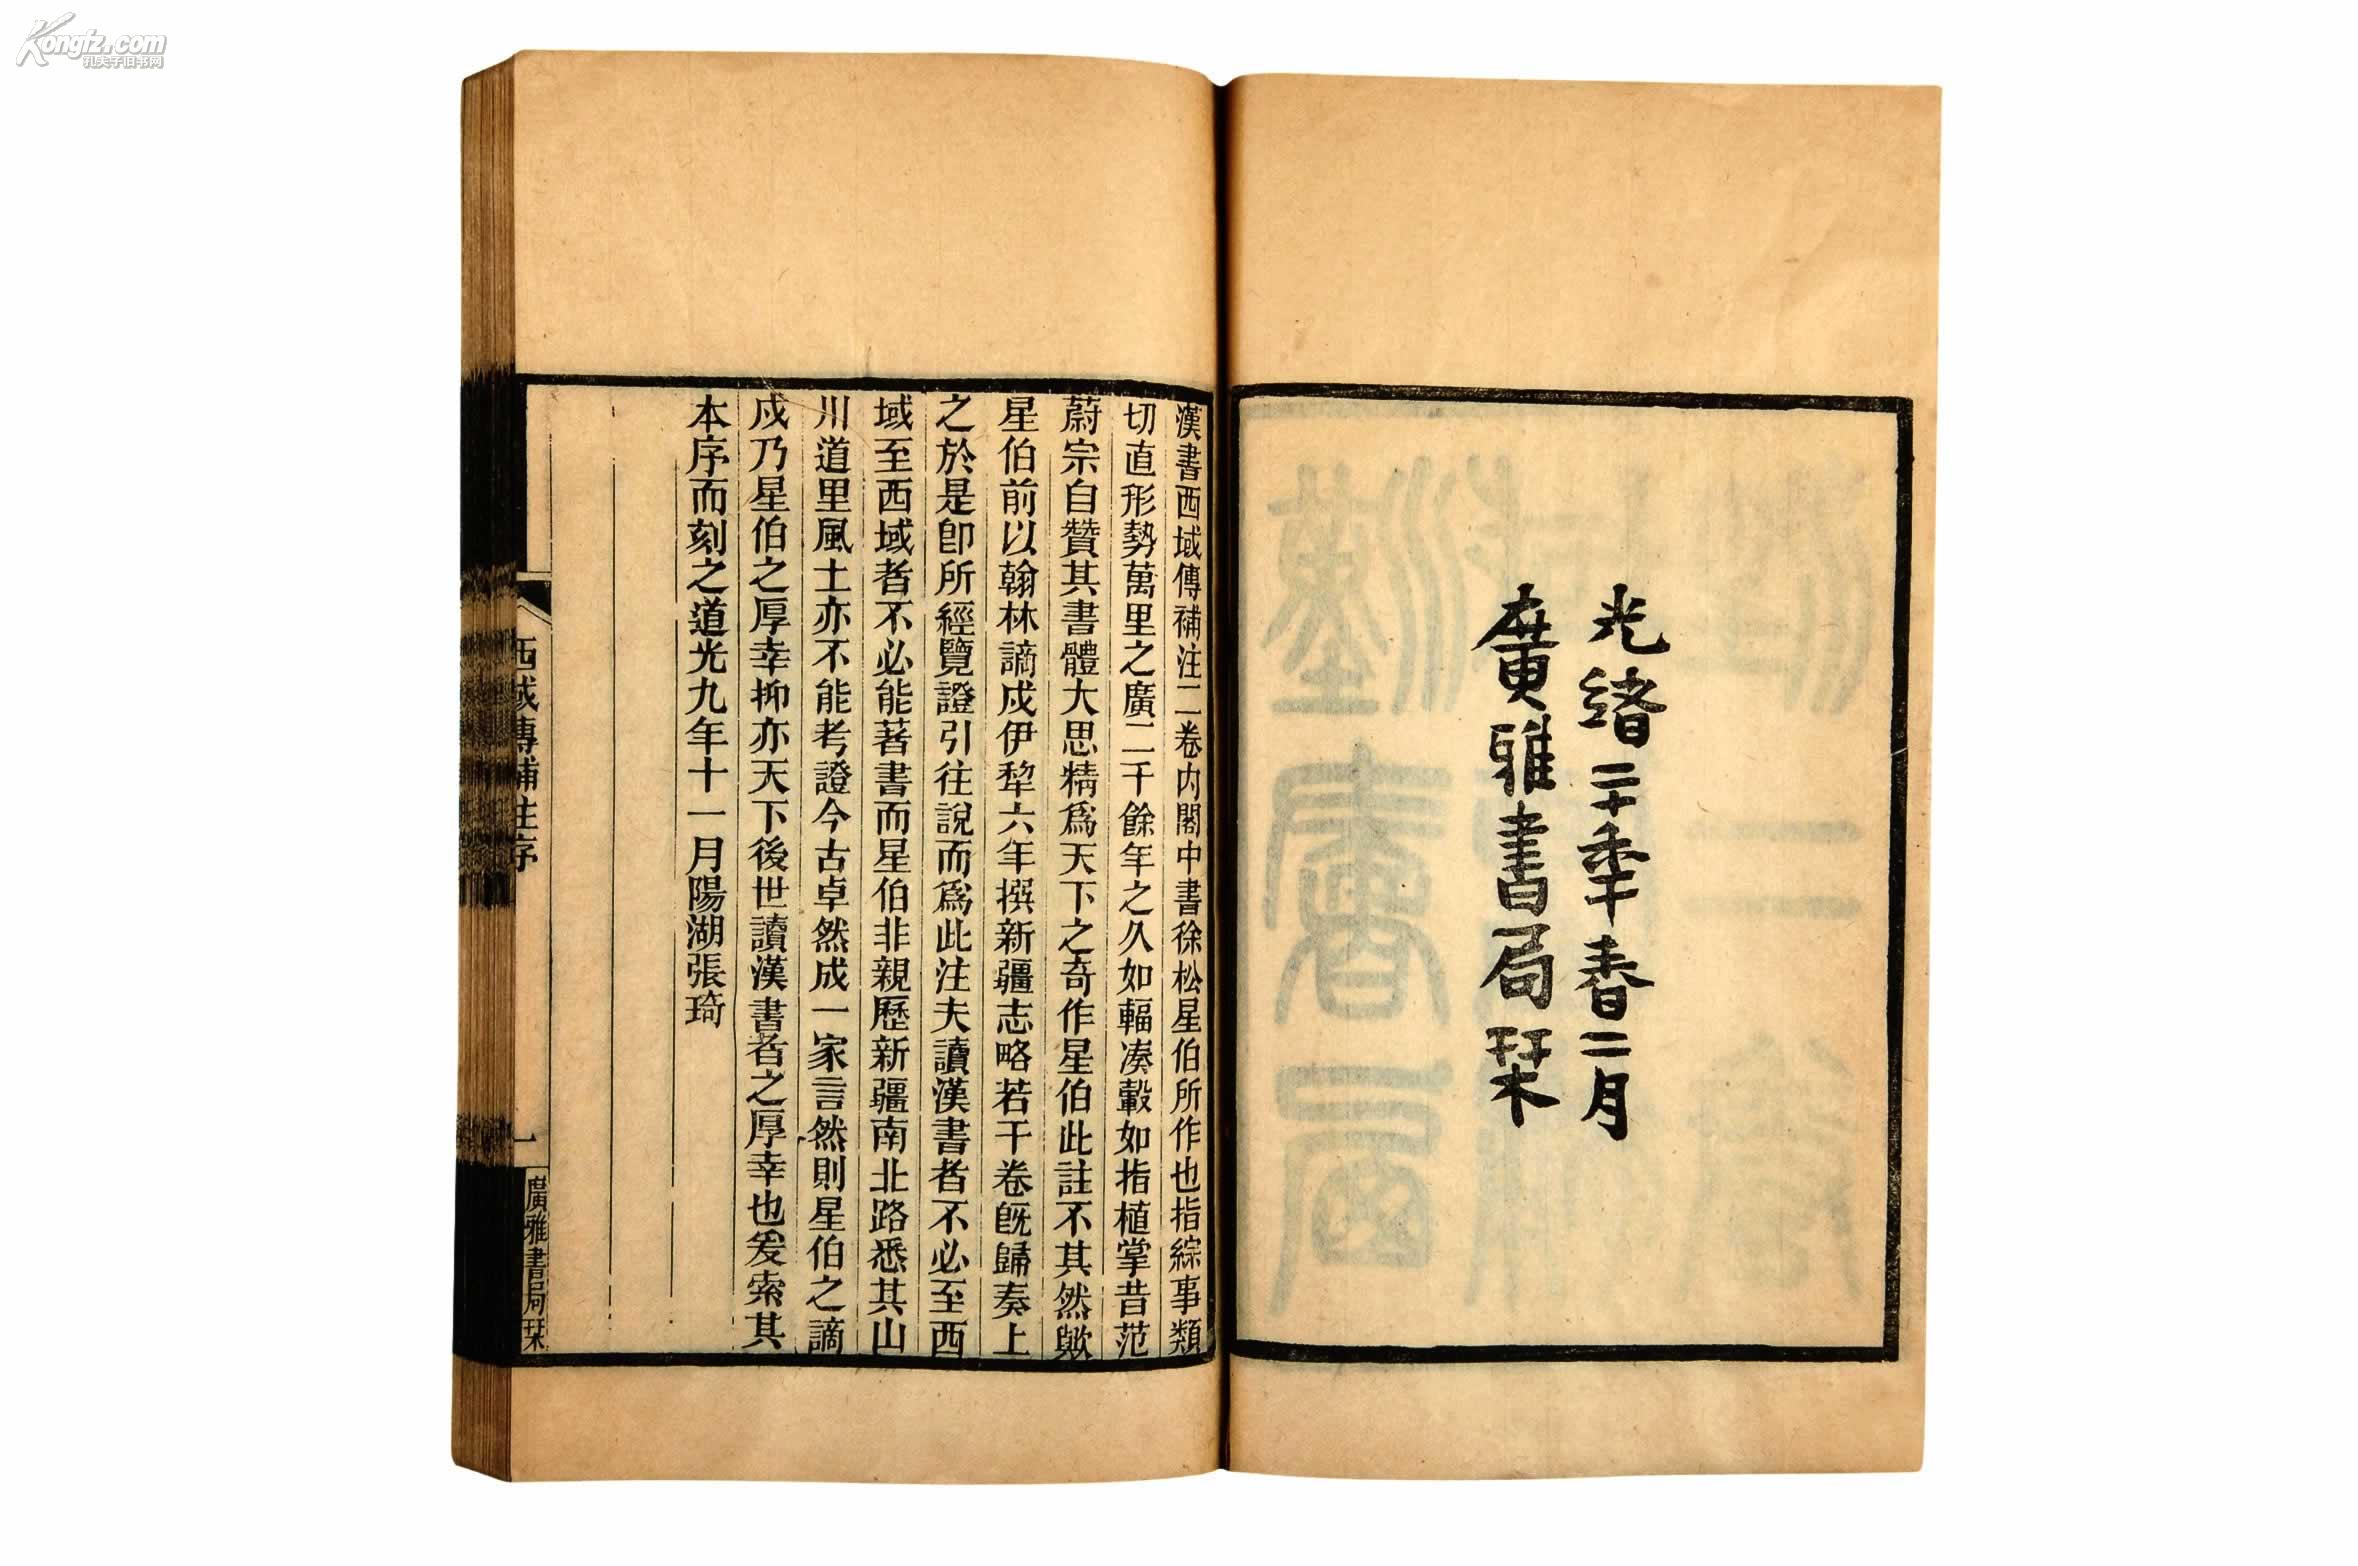 Kongfz.com
孔夫子旧书网
光緒二十秊春二月
廣雅書局栞
漢書西域傳補注二卷內閣中書徐松星伯所作也指綜事類
切直形勢萬里之廣二千餘年之久如輻湊轂如指植掌昔范
蔚宗自贊其書體大思精爲天下之奇作星伯此註不其然歟
星伯前以翰林謫戍伊犂六年撰新疆志略若干卷旣歸奏上
之於是卽所經覽證引往說而爲此注夫讀漢書者不必至西
域至西域者不必能著書而星伯非親歷新疆南北路悉其山
川道里風土亦不能考證今古卓然成一家言然則星伯之謫
戍乃星伯之厚幸抑亦天下後世讀漢書者之厚幸也爰索其
本序而刻之道光九年十一月陽湖張琦
西域傳補注序
一
廣雅書局栞